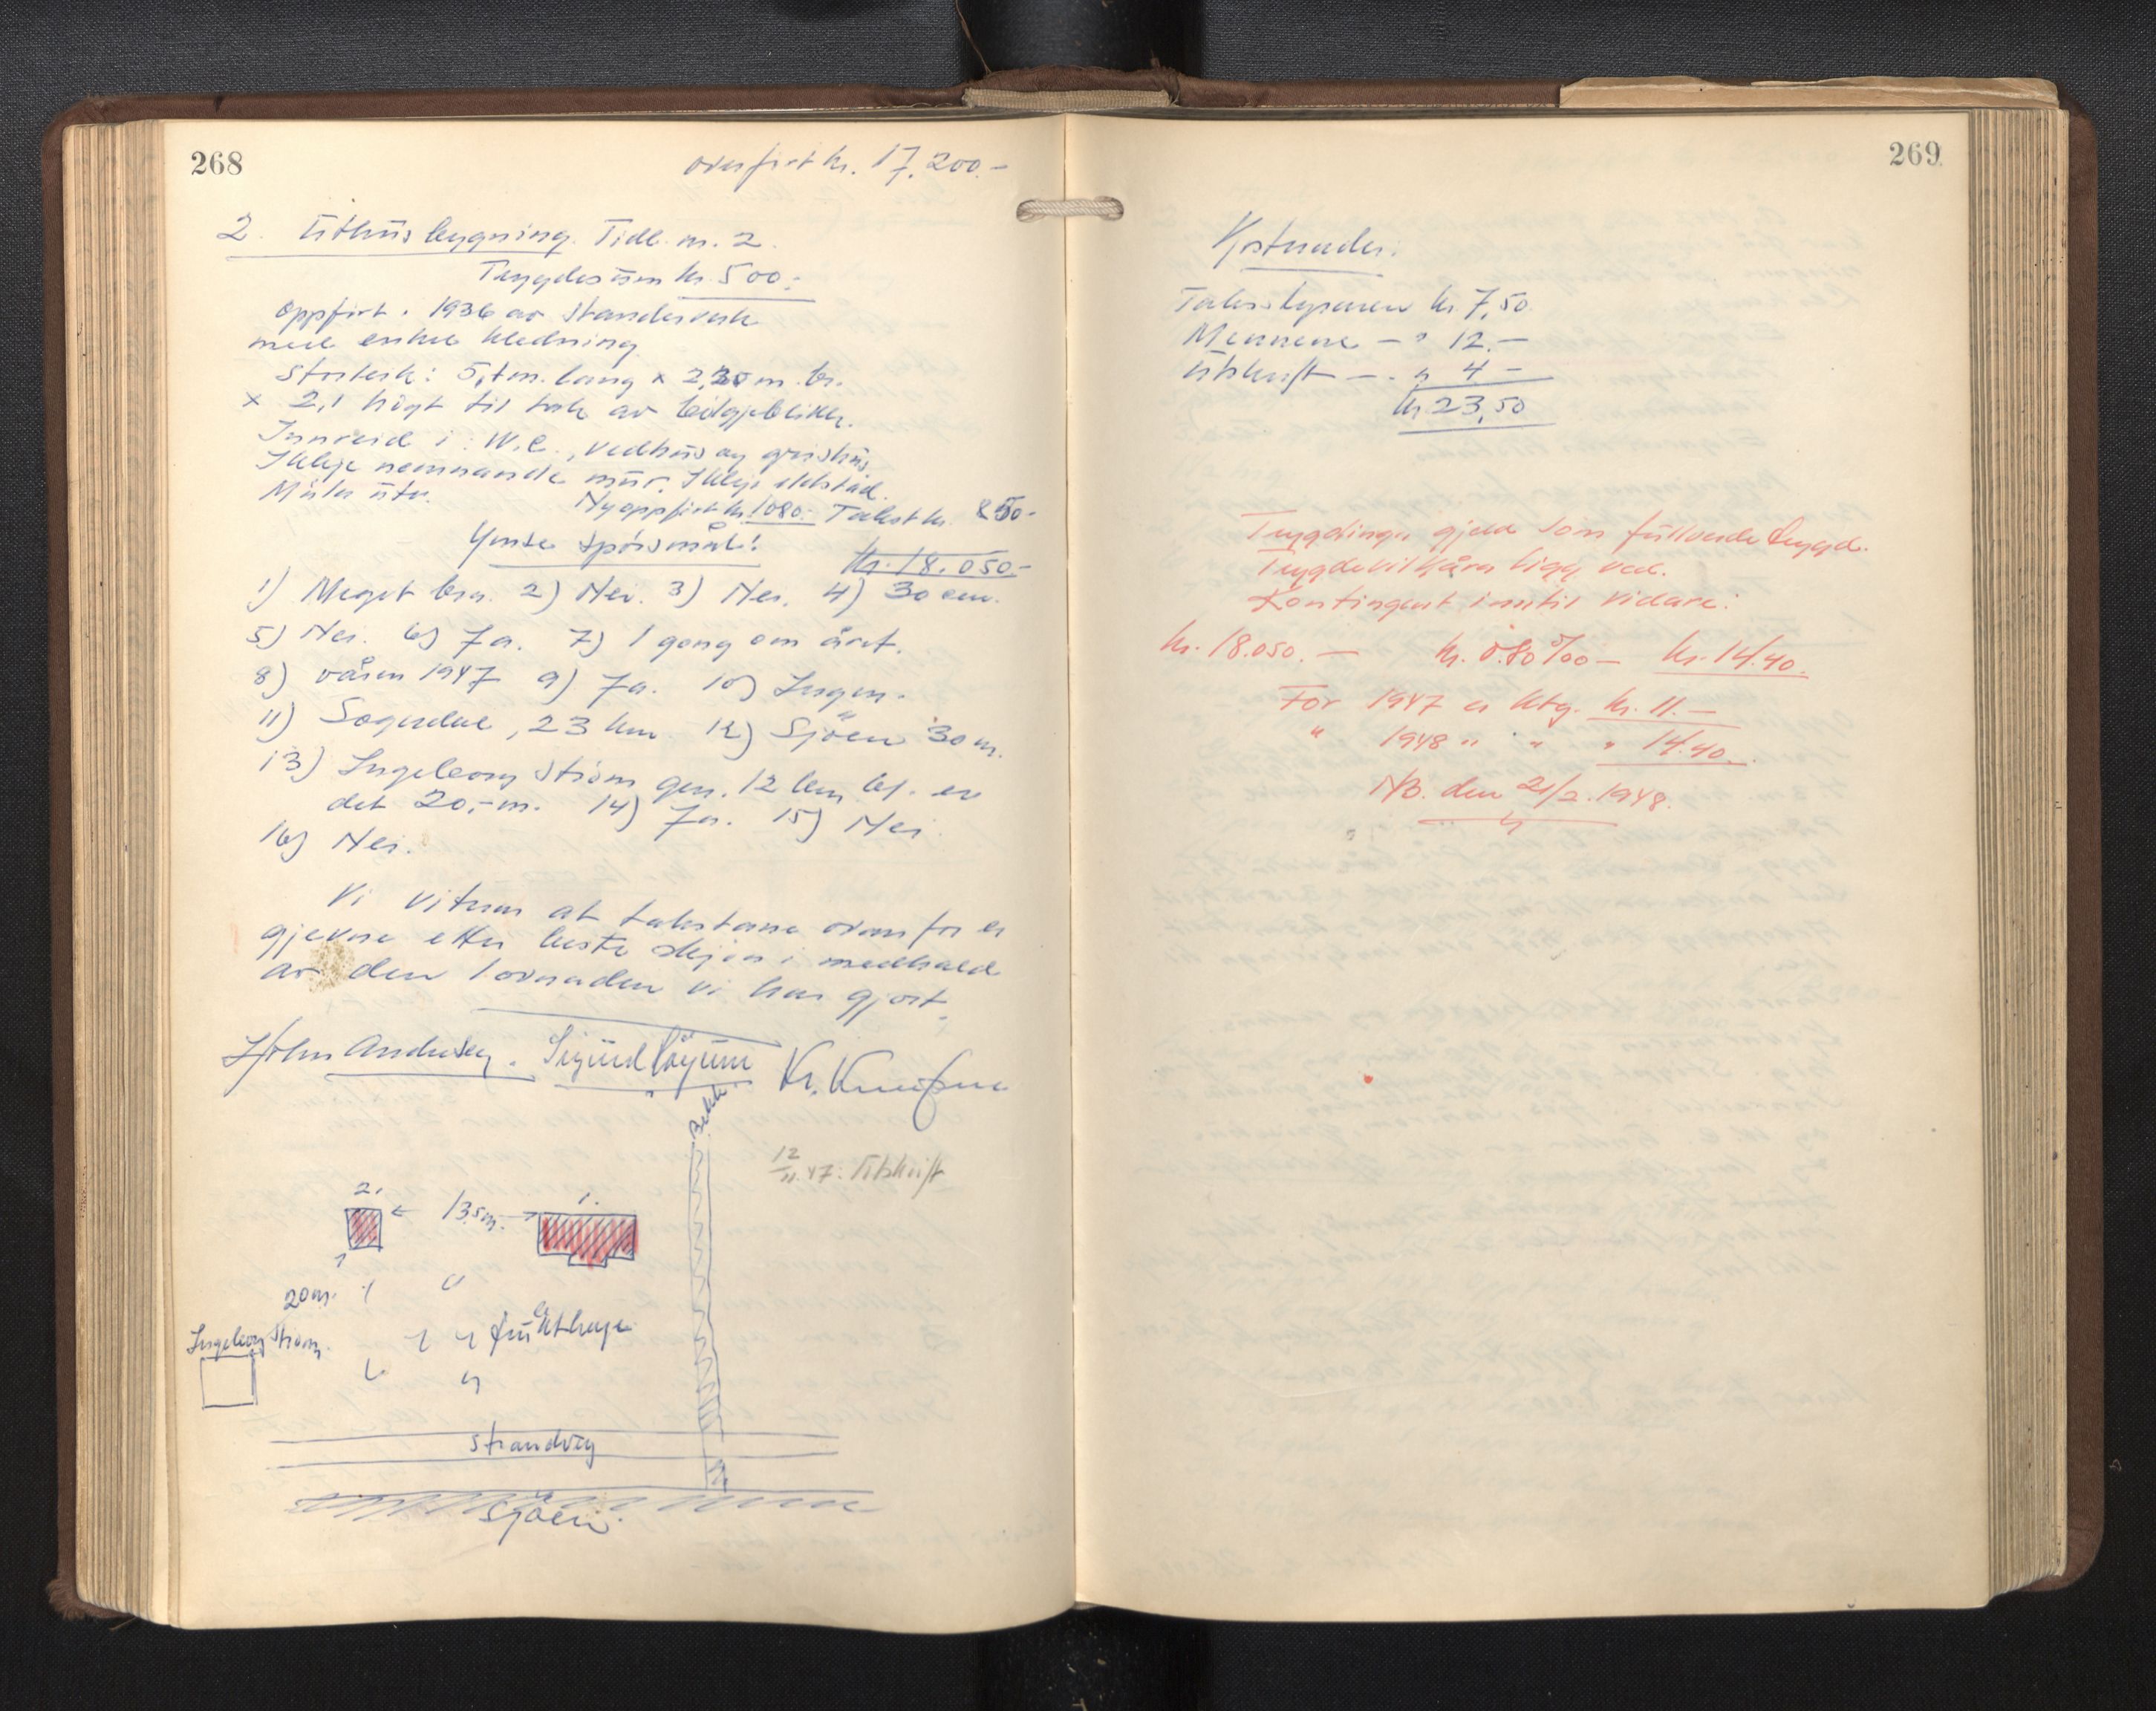 268
overført kr. 17.200.-
2. Uthusbygning. Tidl. nr. 2.
Trygdesum kr. 500.-
Oppført i 1936 av standerverk
med enkel kledning
Storleik: 5,1 m. lang x 2,20 m. br.
x 2,1 høgt til tak av bølgjeblikk.
Innreid i: W.C., vedhus og grishus.
Ikkje nemnande mur. Ikkje eldstad.
Måla utv.
Nyoppført kr. 1080.- Takst kr. 850.-
Ymse spørsmål:
kr. 18.050.-
1) Meget bra. 2) Nei. 3) Nei. 4) 30 cm.
5) Nei. 6) Ja. 7) 1 gong om året.
8) våren 1947 9) Ja. 10) Ingen.
11) Sogndal, 23 km 12) Sjøen 30 m.
13) Ingeborg Strøm gnr. 12 bnr. er
det 20,- m. 14) Ja. 15) Nei.
16) Nei.
Vi vitnar at takstane ovanfor er
gjevne etter beste skjøn i medhald
av den lovnaden vi har gjort.
John Andersen. Sigurd Løyum Kr. Knutsen
Bekk
12/11. 47. Utskrift
2. 1.
13,5 m.
20 m.
Ingeborg Strøm.
frukthage
Strandveg
Sjøen.
269
Kostnader:
Takstlysaren kr. 7,50
Mennene - " 12.-
Utskrift - " 4 -
kr. 23,50
Trygdinga gjeld som fullverde trygd.
Trygdevilkåra ligg ved.
Kontingent inntil vidare:
kr. 18.050.- kr. 0.80‰ - kr. 14.40.
For 1947 er ktg. kr. 11.-
" 1948 " " " 14.40.
NB. den 21/2. 1948.